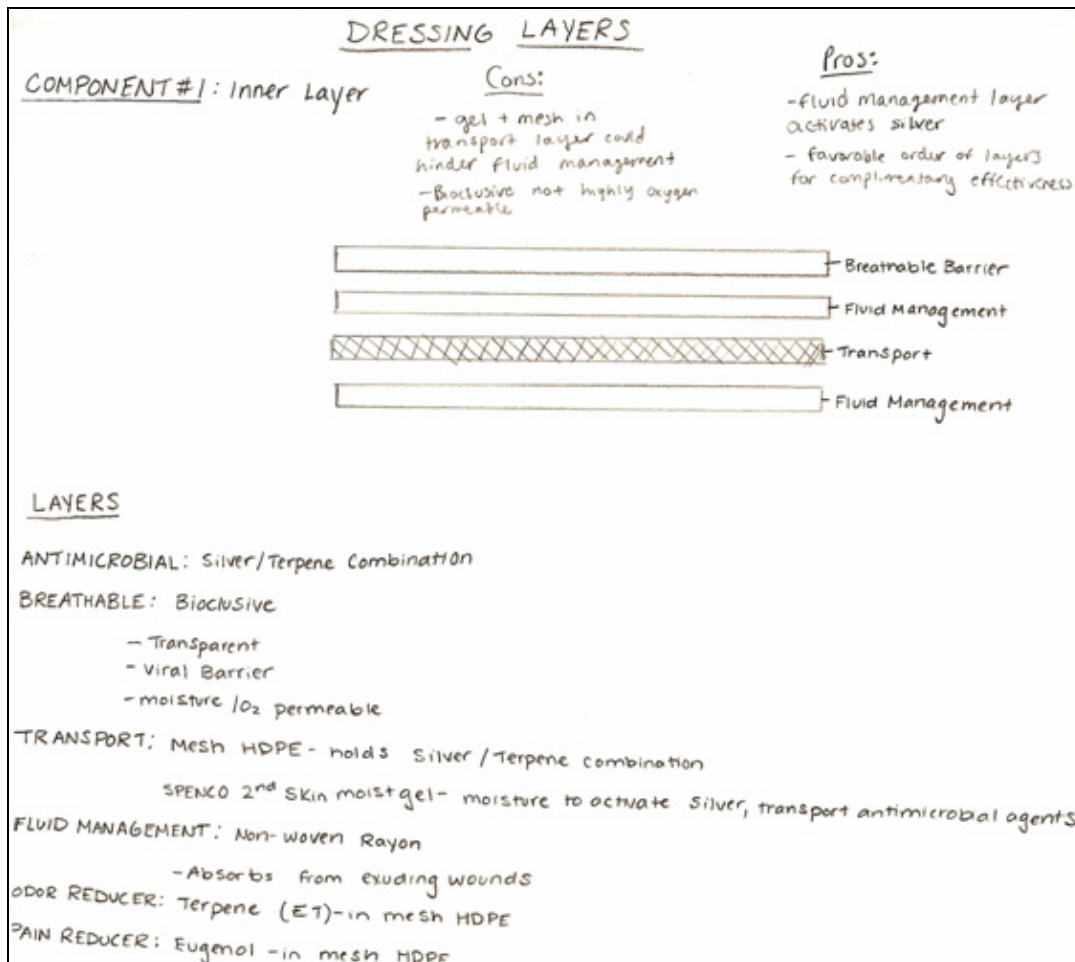 DRESSING LAYERS
COMPONENT #1: Inner Layer
Cons:
- gel + mesh in
transport layer could
hinder fluid management
- Bioclusive not highly oxygen
permeable
Pros:
- fluid management layer
activates silver
- favorable order of layers
for complimentary effectiveness
Breathable Barrier
Fluid Management
Transport
Fluid Management
LAYERS
ANTIMICROBIAL: Silver/Terpene Combination
BREATHABLE: Bioclusive
- Transparent
- Viral Barrier
- moisture /O₂ permeable
TRANSPORT: Mesh HDPE - holds Silver/Terpene combination
SPENCO 2nd Skin moist gel - moisture to activate Silver, transport antimicrobial agents
FLUID MANAGEMENT: Non-woven Rayon
- Absorbs from exuding wounds
ODOR REDUCER: Terpene (ET) - in mesh HDPE
PAIN REDUCER: Eugenol - in mesh HDPE